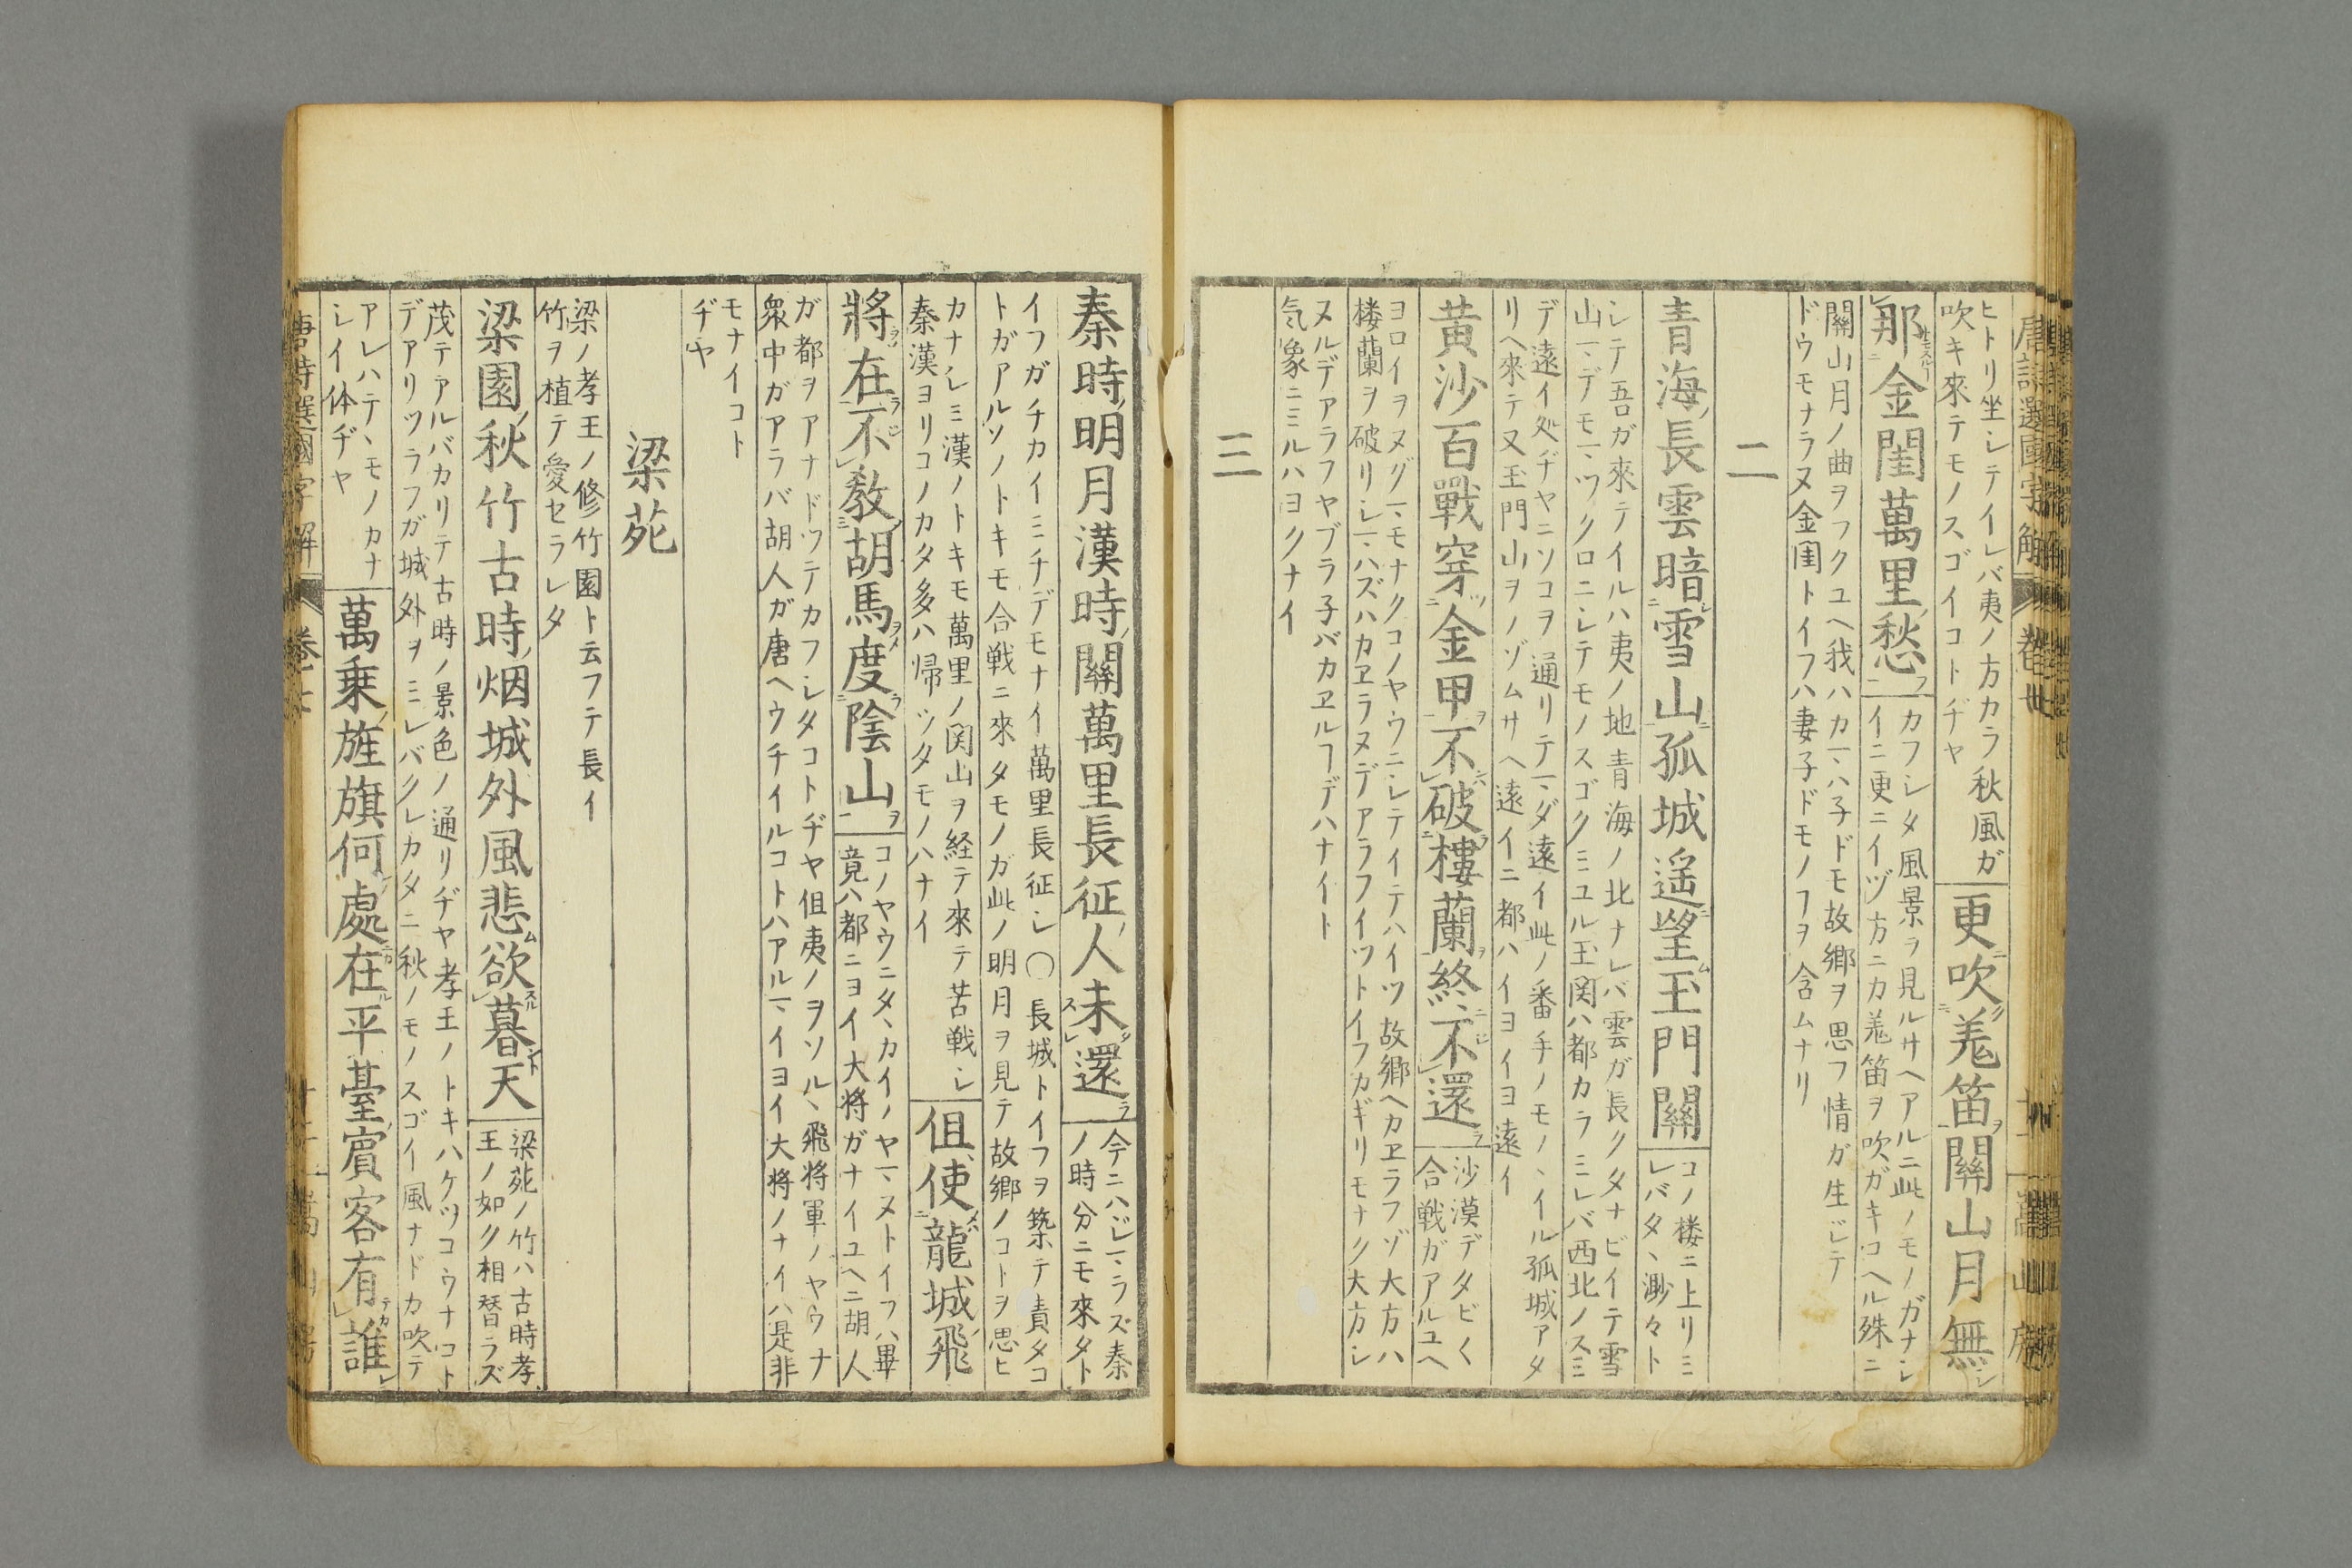 ヒトリ坐シテイレバ夷ノ方カラ秋風ガ
吹キ來テモノスゴイコトヂヤ
更吹羗笛關山月無
那金閨萬里愁
カフシタ風景ヲ見ルサヘアルニ此ノモノガナシ
イニ更ニイヅ方ニカ羗笛ヲ吹ガキコヘル殊ニ
關山月ノ曲ヲフクユヘ我ハカマハ子ドモ故郷ヲ思フ情ガ生ジテ
ドウモナラヌ金閨トイフハ妻子ドモノヿヲ含ムナリ
二
青海長雲暗雪山孤城遥望玉門關
コノ楼ニ上リミ
レバタヾ渺々ト
シテ吾ガ來テイルハ夷ノ地青海ノ北ナレバ雲ガ長クタナビイテ雪
山マデモマツクロニシテモノスゴクミユル玉関ハ都カラミレバ西北ノスミ
デ遠イ処ヂヤニソコヲ通リテマダ遠イ此ノ番手ノモノヽイル孤城アタ
リヘ來テ又玉門山ヲノゾムサヘ遠イニ都ハイヨイヨ遠イ
黄沙百戰穿金甲不破樓蘭終不還
沙漠デタビ〱
合戦ガアルユヘ
ヨロイヲヌグマモナクコノヤウニシテイテハイツ故郷ヘカヱラフゾ大方ハ
楼蘭ヲ破リシマハズハカヱラヌデアラフイツトイフカギリモナク大方シ
ヌルデアラフヤブラ子バカヱルヿデハナイト
気象ニミルハヨクナイ
三
秦時明月漢時關萬里長征人未還
今ニハジマラズ秦
ノ時分ニモ來タト
イフガチカイミチデモナイ萬里長征シ〇長城トイフヲ築テ責タコ
トガアルソノトキモ合戦ニ來タモノガ此ノ明月ヲ見テ故郷ノコトヲ思ヒ
カナシミ漢ノトキモ萬里ノ関山ヲ経テ來テ苦戦シ
秦漢ヨリコノカタ多ハ帰ツタモノハナイ
但使龍城飛
將在不敎胡馬度陰山
コノヤウニタヽカイノヤマヌトイフハ畢
竟ハ都ニヨイ大将ガナイユヘニ胡人
ガ都ヲアナドツテカフシタコトヂヤ但夷ノヲソルヽ飛将軍ノヤウナ
衆中ガアラバ胡人ガ唐ヘウチイルコトハアルマイヨイ大将ノナイハ是非
モナイコト
ヂヤ
梁苑
梁ノ孝王ノ修竹園ト云フテ長イ
竹ヲ植テ愛セラレタ
梁園秋竹古時烟城外風悲欲暮天
梁苑ノ竹ハ古時孝
王ノ如ク相替ラズ
茂テアルバカリテ古時ノ景色ノ通リヂヤ孝王ノトキハケツコウナコト
デアリツラフガ城外ヲミレバクレカタニ秋ノモノスゴイ風ナドカ吹テ
アレハテヽモノカナ
シイ体ヂヤ
萬乗旌旗何處在平臺賔客有誰
唐詩選國字解